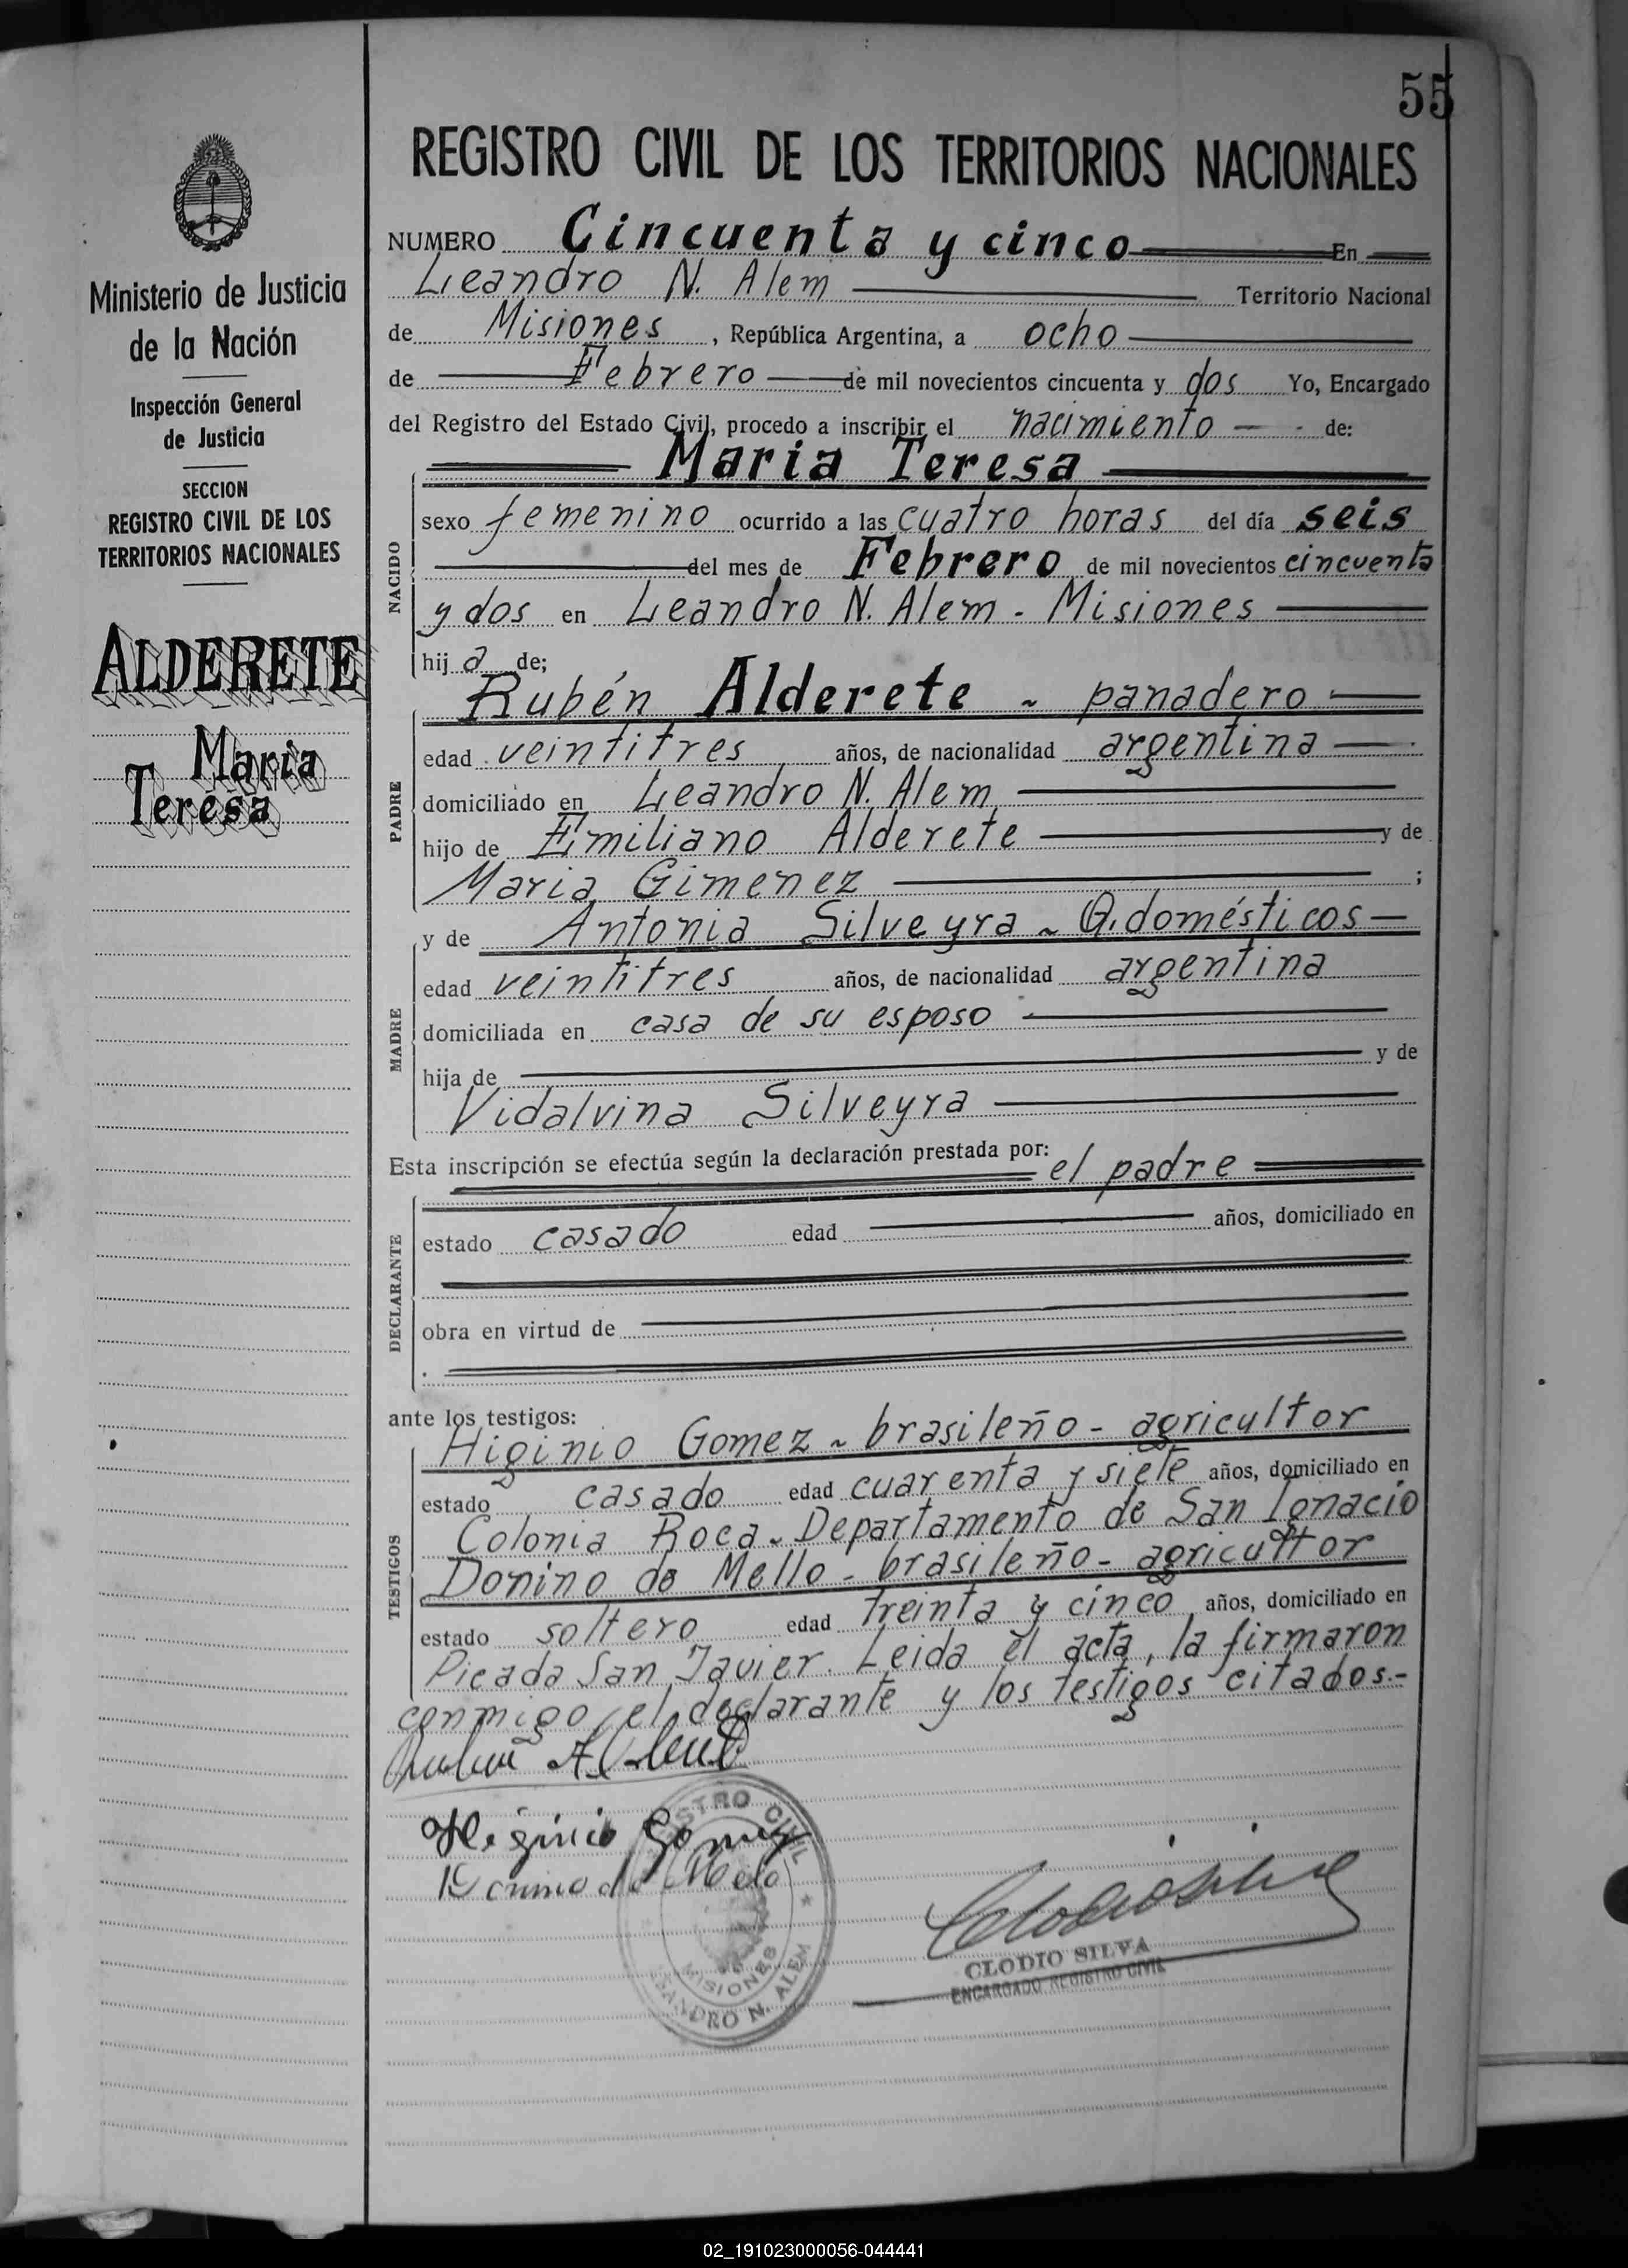 55
REGISTRO CIVIL DE LOS TERRITORIOS NACIONALES
Ministerio de Justicia
de la Nación
Inspección General
de Justicia
SECCION
REGISTRO CIVIL DE LOS
TERRITORIOS NACIONALES
ALDERETE
Maria
Teresa
NUMERO Cincuenta y cinco En
Leandro N. Alem Territorio Nacional
de Misiones, República Argentina, a ocho
de Febrero de mil novecientos cincuenta y dos Yo, Encargado
del Registro del Estado Civil, procedo a inscribir el nacimiento de:
Maria Teresa
NACIDO
sexo femenino ocurrido a las cuatro horas del día seis
del mes de Febrero de mil novecientos cincuenta
y dos en Leandro N. Alem - Misiones
hija de;
Rubén Alderete - panadero
PADRE
edad veintitres años, de nacionalidad argentina
domiciliado en Leandro N. Alem
hijo de Emiliano Alderete y de
Maria Gimenez ;
y de Antonia Silveyra - Q. domésticos
MADRE
edad veintitres años, de nacionalidad argentina
domiciliada en casa de su esposo
hija de y de
Vidalvina Silveyra
Esta inscripción se efectúa según la declaración prestada por: el padre
DECLARANTE
estado casado edad años, domiciliado en
obra en virtud de
ante los testigos:
Higinio Gomez - brasileño - agricultor
TESTIGOS
estado casado edad cuarenta y siete años, domiciliado en
Colonia Roca - Departamento de San Ignacio
Donino de Mello - brasileño - agricultor
estado soltero edad treinta y cinco años, domiciliado en
Picada San Javier. Leida el acta, la firmaron
conmigo, el declarante y los testigos citados.-
Ruben Alderete
Higinio Gomez
Donino de Melo
REGISTRO CIVIL
MISIONES
LEANDRO N. ALEM
Clodio Silva
CLODIO SILVA
ENCARGADO REGISTRO CIVIL
02_191023000056-044441